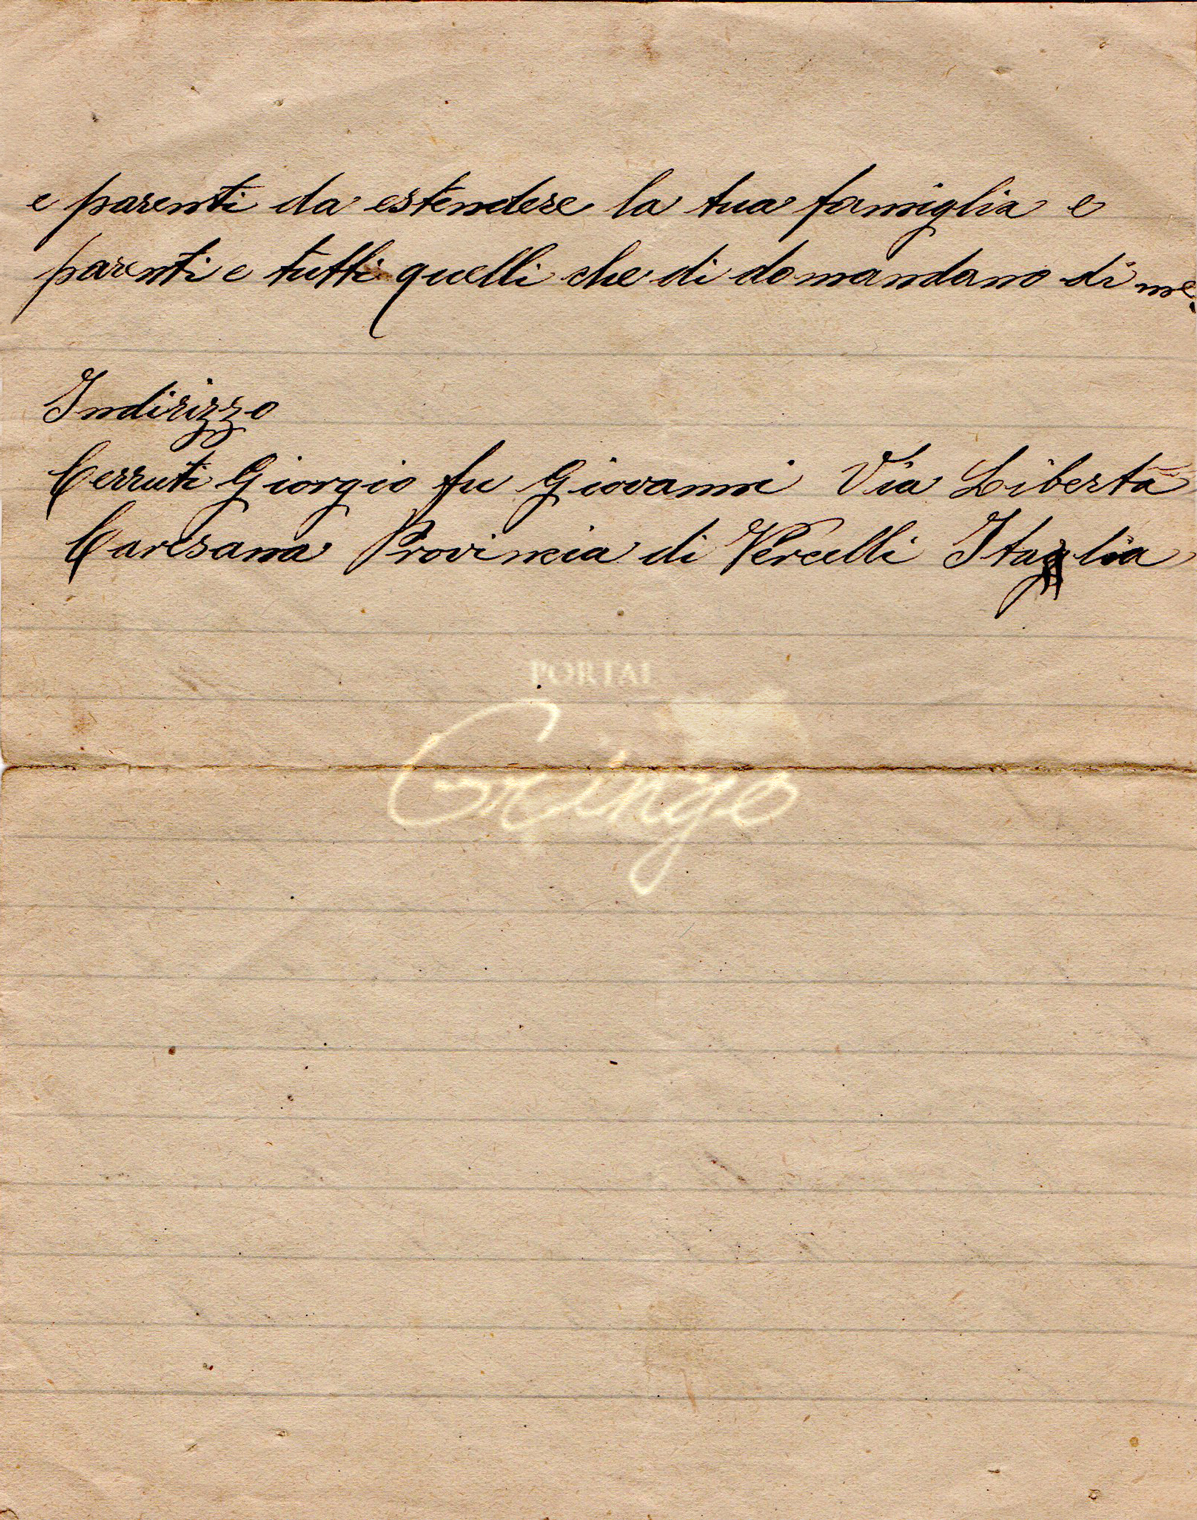 e parenti da estendere la tua famiglia e
parenti e tutti quelli che di domandano di me.
Indirizzo
Cerruti Giorgio fu Giovanni Via Libertà
Caresana Provincia di Vercelli Itaglia
PORTAL
Gringo